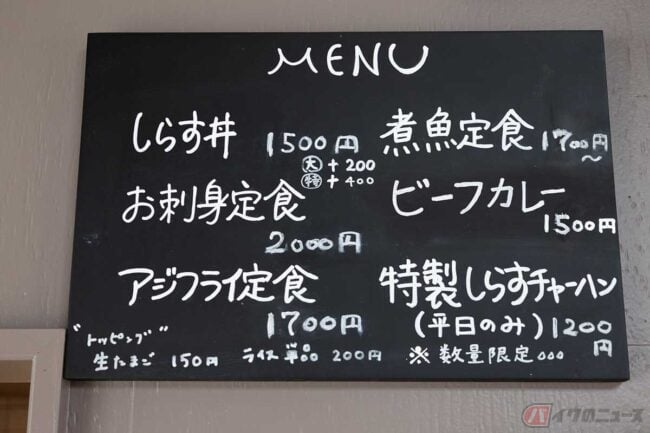 MENU
しらす丼 1500円
大+200
特+400
お刺身定食
2000円
アジフライ定食
1700円
"トッピング"
生たまご 150円 ライス単品 200円
煮魚定食 1700円
〜
ビーフカレー
1500円
特製しらすチャーハン
(平日のみ) 1200円
※数量限定...
バイクのニュース